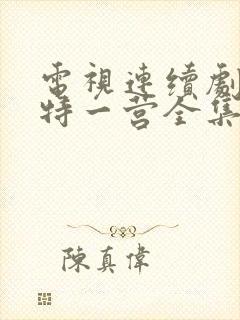 電視連續劇
特一营全集
陳真偉